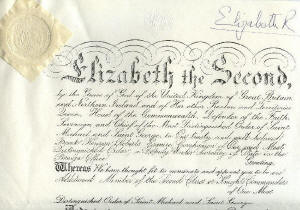 Elizabeth R
Elizabeth the Second,
by the Grace of God of the United Kingdom of Great Britain
and Northern Ireland and of Her other Realms and Territories
Queen, Head of the Commonwealth, Defender of the Faith,
Sovereign and Chief of the Most Distinguished Order of Saint
Michael and Saint George, to Our trusty and well beloved
Frank Kenyon Roberts Esquire Companion of Our said Most
Distinguished Order
Foreign Office Greeting
Whereas We have thought fit to nominate and appoint you to be an
Member of the Second Class or Knights Commanders
of Our Most
Distinguished Order of Saint Michael and Saint George